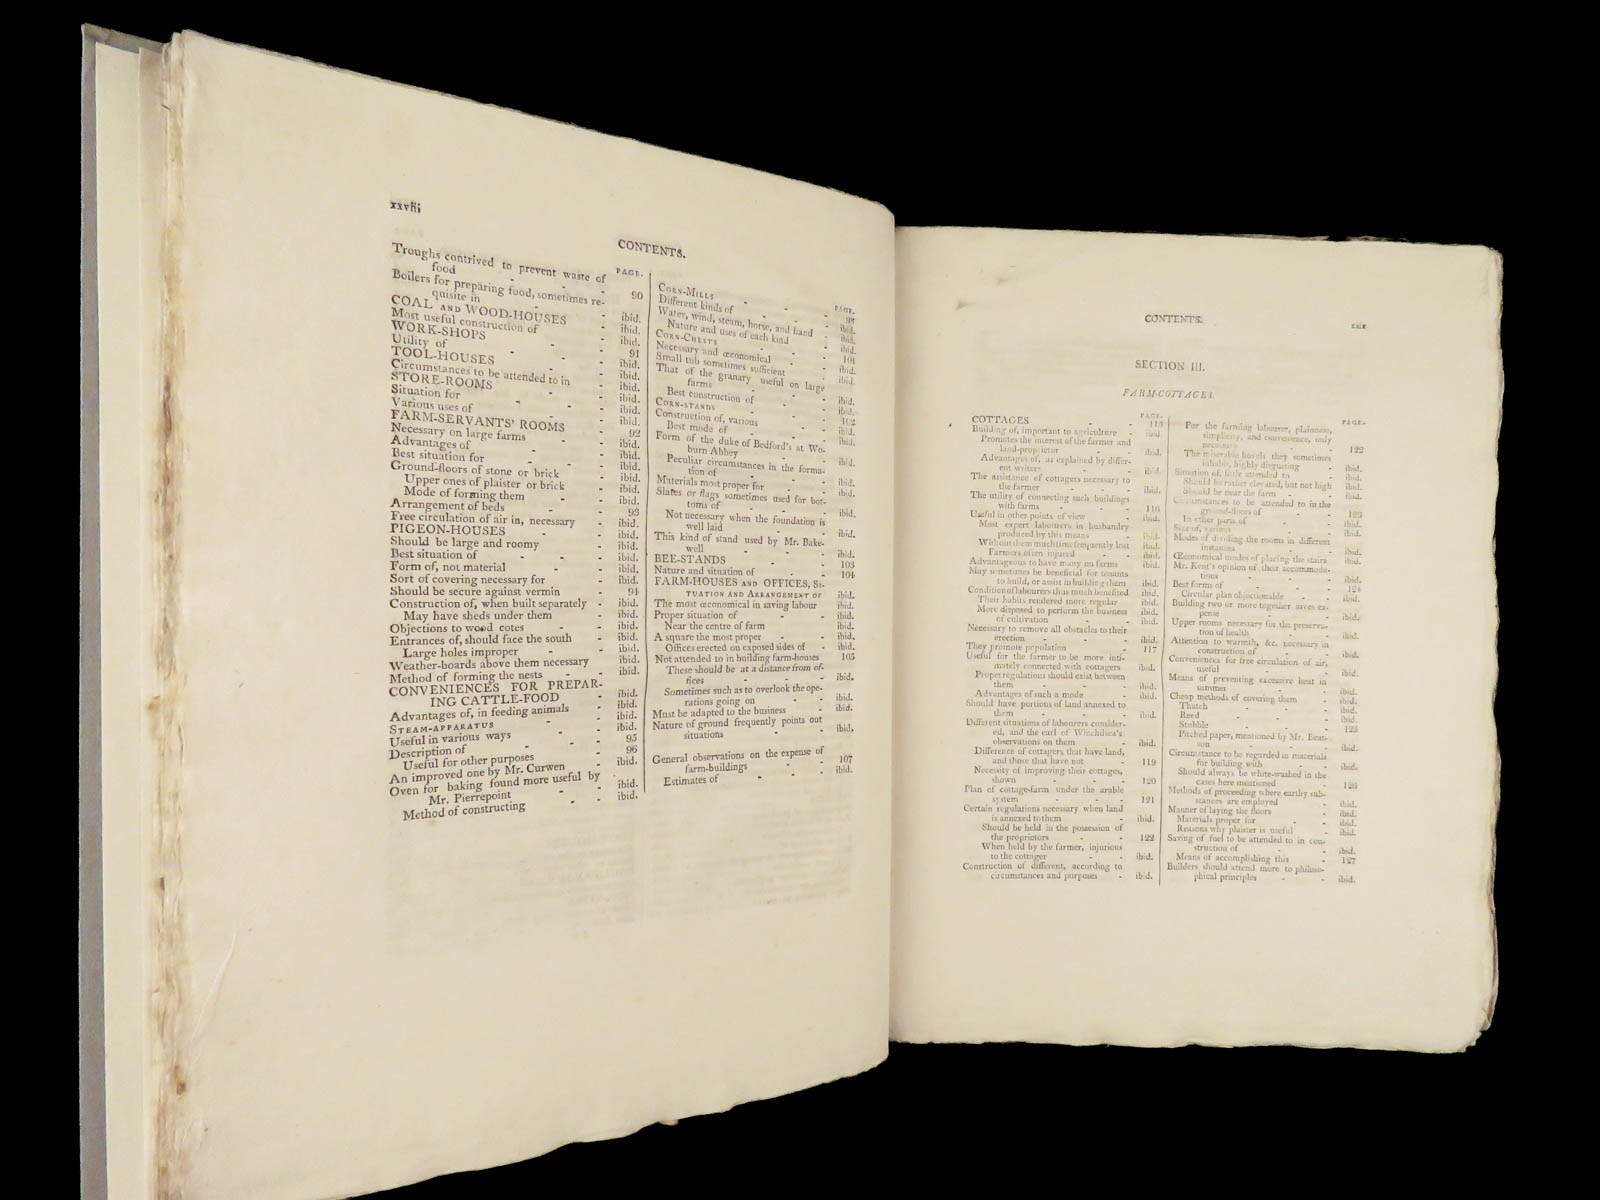 xxviii
CONTENTS.
PAGE.
Troughs contrived to prevent waste of
food - - - 90
Boilers for preparing food, sometimes re-
quisite in - - ibid.
COAL AND WOOD-HOUSES - ibid.
Most useful construction of - - ibid.
WORK-SHOPS - - 91
Utility of - - ibid.
TOOL-HOUSES - - ibid.
Circumstances to be attended to in - ibid.
STORE-ROOMS - - ibid.
Situation for - - ibid.
Various uses of - - ibid.
FARM-SERVANTS' ROOMS - 92
Necessary on large farms - - ibid.
Advantages of - - ibid.
Best situation for - - ibid.
Ground-floors of stone or brick - - ibid.
Upper ones of plaister or brick - ibid.
Mode of forming them - - ibid.
Arrangement of beds - - 93
Free circulation of air in, necessary - ibid.
PIGEON-HOUSES - - ibid.
Should be large and roomy - ibid.
Best situation of - - - ibid.
Form of, not material - - ibid.
Sort of covering necessary for - ibid.
Should be secure against vermin - 94
Construction of, when built separately - ibid.
May have sheds under them - ibid.
Objections to wood cotes - - ibid.
Entrances of, should face the south - ibid.
Large holes improper - - ibid.
Weather-boards above them necessary ibid.
Method of forming the nests - - ibid.
CONVENIENCES FOR PREPAR-
ING CATTLE-FOOD - ibid.
Advantages of, in feeding animals - ibid.
STEAM-APPARATUS - - ibid.
Useful in various ways - - 95
Description of - - 96
Useful for other purposes - ibid.
An improved one by Mr. Curwen
Oven for baking found more useful by
Mr. Pierrepoint - - ibid.
Method of constructing - - ibid.
PAGE.
CORN-MILLS - - - 98
Different kinds of - - - ibid.
Water, wind, steam, horse, and hand - ibid.
Nature and uses of each kind - ibid.
CORN-CHESTS - - - 101
Necessary and œconomical - - ibid.
Small tub sometimes sufficient - ibid.
That of the granary useful on large
farms - - - ibid.
Best construction of - - ibid.
CORN-STANDS - - - 102
Construction of, various - - ibid.
Best mode of - - - ibid.
Form of the duke of Bedford's at Wo-
burn Abbey - - ibid.
Peculiar circumstances in the forma-
tion of - - - ibid.
Materials most proper for - - ibid.
Slates or flags sometimes used for bot-
toms of - - - ibid.
Not necessary when the foundation is
well laid - - ibid.
This kind of stand used by Mr. Bake-
well - - - ibid.
BEE-STANDS - - 103
Nature and situation of - - 104
FARM-HOUSES AND OFFICES, SI-
TUATION AND ARRANGEMENT OF ibid.
The most œconomical in saving labour ibid.
Proper situation of - - ibid.
Near the centre of farm ibid.
A square the most proper - - ibid.
Offices erected on exposed sides of - ibid.
Not attended to in building farm-houses 105
These should be at a distance from of-
fices - - - ibid.
Sometimes such as to overlook the ope-
rations going on - - ibid.
Must be adapted to the business - ibid.
Nature of ground frequently points out
situations - - ibid.
General observations on the expense of
farm-buildings - - 107
Estimates of - - - ibid.
CONTENTS.
xxix
SECTION III.
FARM-COTTAGES.
PAGE.
COTTAGES - - 115
Building of, important to agriculture - ibid.
Promotes the interest of the farmer and
land-proprietor - - ibid.
Advantages of, as explained by differ-
ent writers - - ibid.
The assistance of cottagers necessary to
the farmer - - ibid.
The utility of connecting such buildings
with farms - - - 116
Useful in other points of view - ibid.
Most expert labourers in husbandry
produced by this means - ibid.
Without them much time frequently lost ibid.
Farmers often injured - - ibid.
Advantageous to have many on farms ibid.
May sometimes be beneficial for tenants
to build, or assist in building them ibid.
Condition of labourers thus much benefited ibid.
Their habits rendered more regular ibid.
More disposed to perform the business ibid.
of cultivation - - ibid.
Necessary to remove all obstacles to their
erection - - - ibid.
They promote population - - 117
Useful for the farmer to be more inti-
mately connected with cottagers ibid.
Proper regulations should exist between
them - - - ibid.
Advantages of such a mode - - ibid.
Should have portions of land annexed to
them - - - ibid.
Different situations of labourers consider-
ed, and the earl of Winchilsea's
observations on them - ibid.
Difference of cottagers that have land,
and those that have not - 119
Necessity of improving their cottages,
shown - - - 120
Plan of cottage-farm under the arable
system - - - 121
Certain regulations necessary when land
is annexed to them - ibid.
Should be held in the possession of
the proprietors - - 122
When held by the farmer, injurious
to the cottager - - ibid.
Construction of different, according to
circumstances and purposes - ibid.
PAGE.
For the farming labourer, plainness,
simplicity, and convenience, only
necessary - - - 122
The miserable hovels they sometimes
inhabit, highly disgusting - ibid.
Situation of, little attended to - ibid.
Should be rather elevated, but not high ibid.
Should be near the farm - - ibid.
Circumstances to be attended to in the
ground-floors of - - 123
In other parts of - - ibid.
Size of, various - - ibid.
Modes of dividing the rooms in different
instances - - ibid.
Œconomical modes of placing the stairs ibid.
Mr. Kent's opinion of their accommoda-
tions - - - ibid.
Best forms of - - 124
Circular plan objectionable - - ibid.
Building two or more together saves ex-
pense - - - ibid.
Upper rooms necessary for the preserva-
tion of health - - ibid.
Attention to warmth, &c. necessary in
construction of - - ibid.
Conveniences for free circulation of air,
useful - - - ibid.
Means of preventing excessive heat in
summer - - - ibid.
Cheap methods of covering them - ibid.
Thatch - - - ibid.
Reed - - - ibid.
Stubble - - - 125
Pitched paper, mentioned by Mr. Beat-
son - - - ibid.
Circumstance to be regarded in materials
for building with - - ibid.
Should always be white-washed in the
cases here mentioned - 126
Methods of proceeding where earthy sub-
stances are employed - ibid.
Manner of laying the floors - ibid.
Materials proper for - - ibid.
Reasons why plaister is useful - ibid.
Saving of fuel to be attended to in con-
struction of - - ibid.
Means of accomplishing this - 127
Builders should attend more to philoso-
phical principles - - ibid.